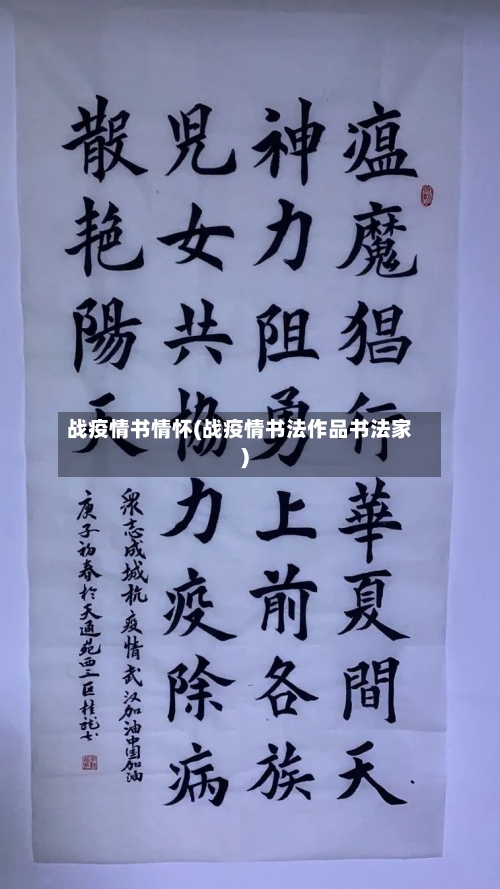 瘟魔猖行華夏間天
神力阻勇上前各族
児女共協力疫除病
散艳陽天
眾志成城抗疫情武汉加油中国加油
庚子初春於天通苑西三区桂
战疫情书情怀(战疫情书法作品书法家
)